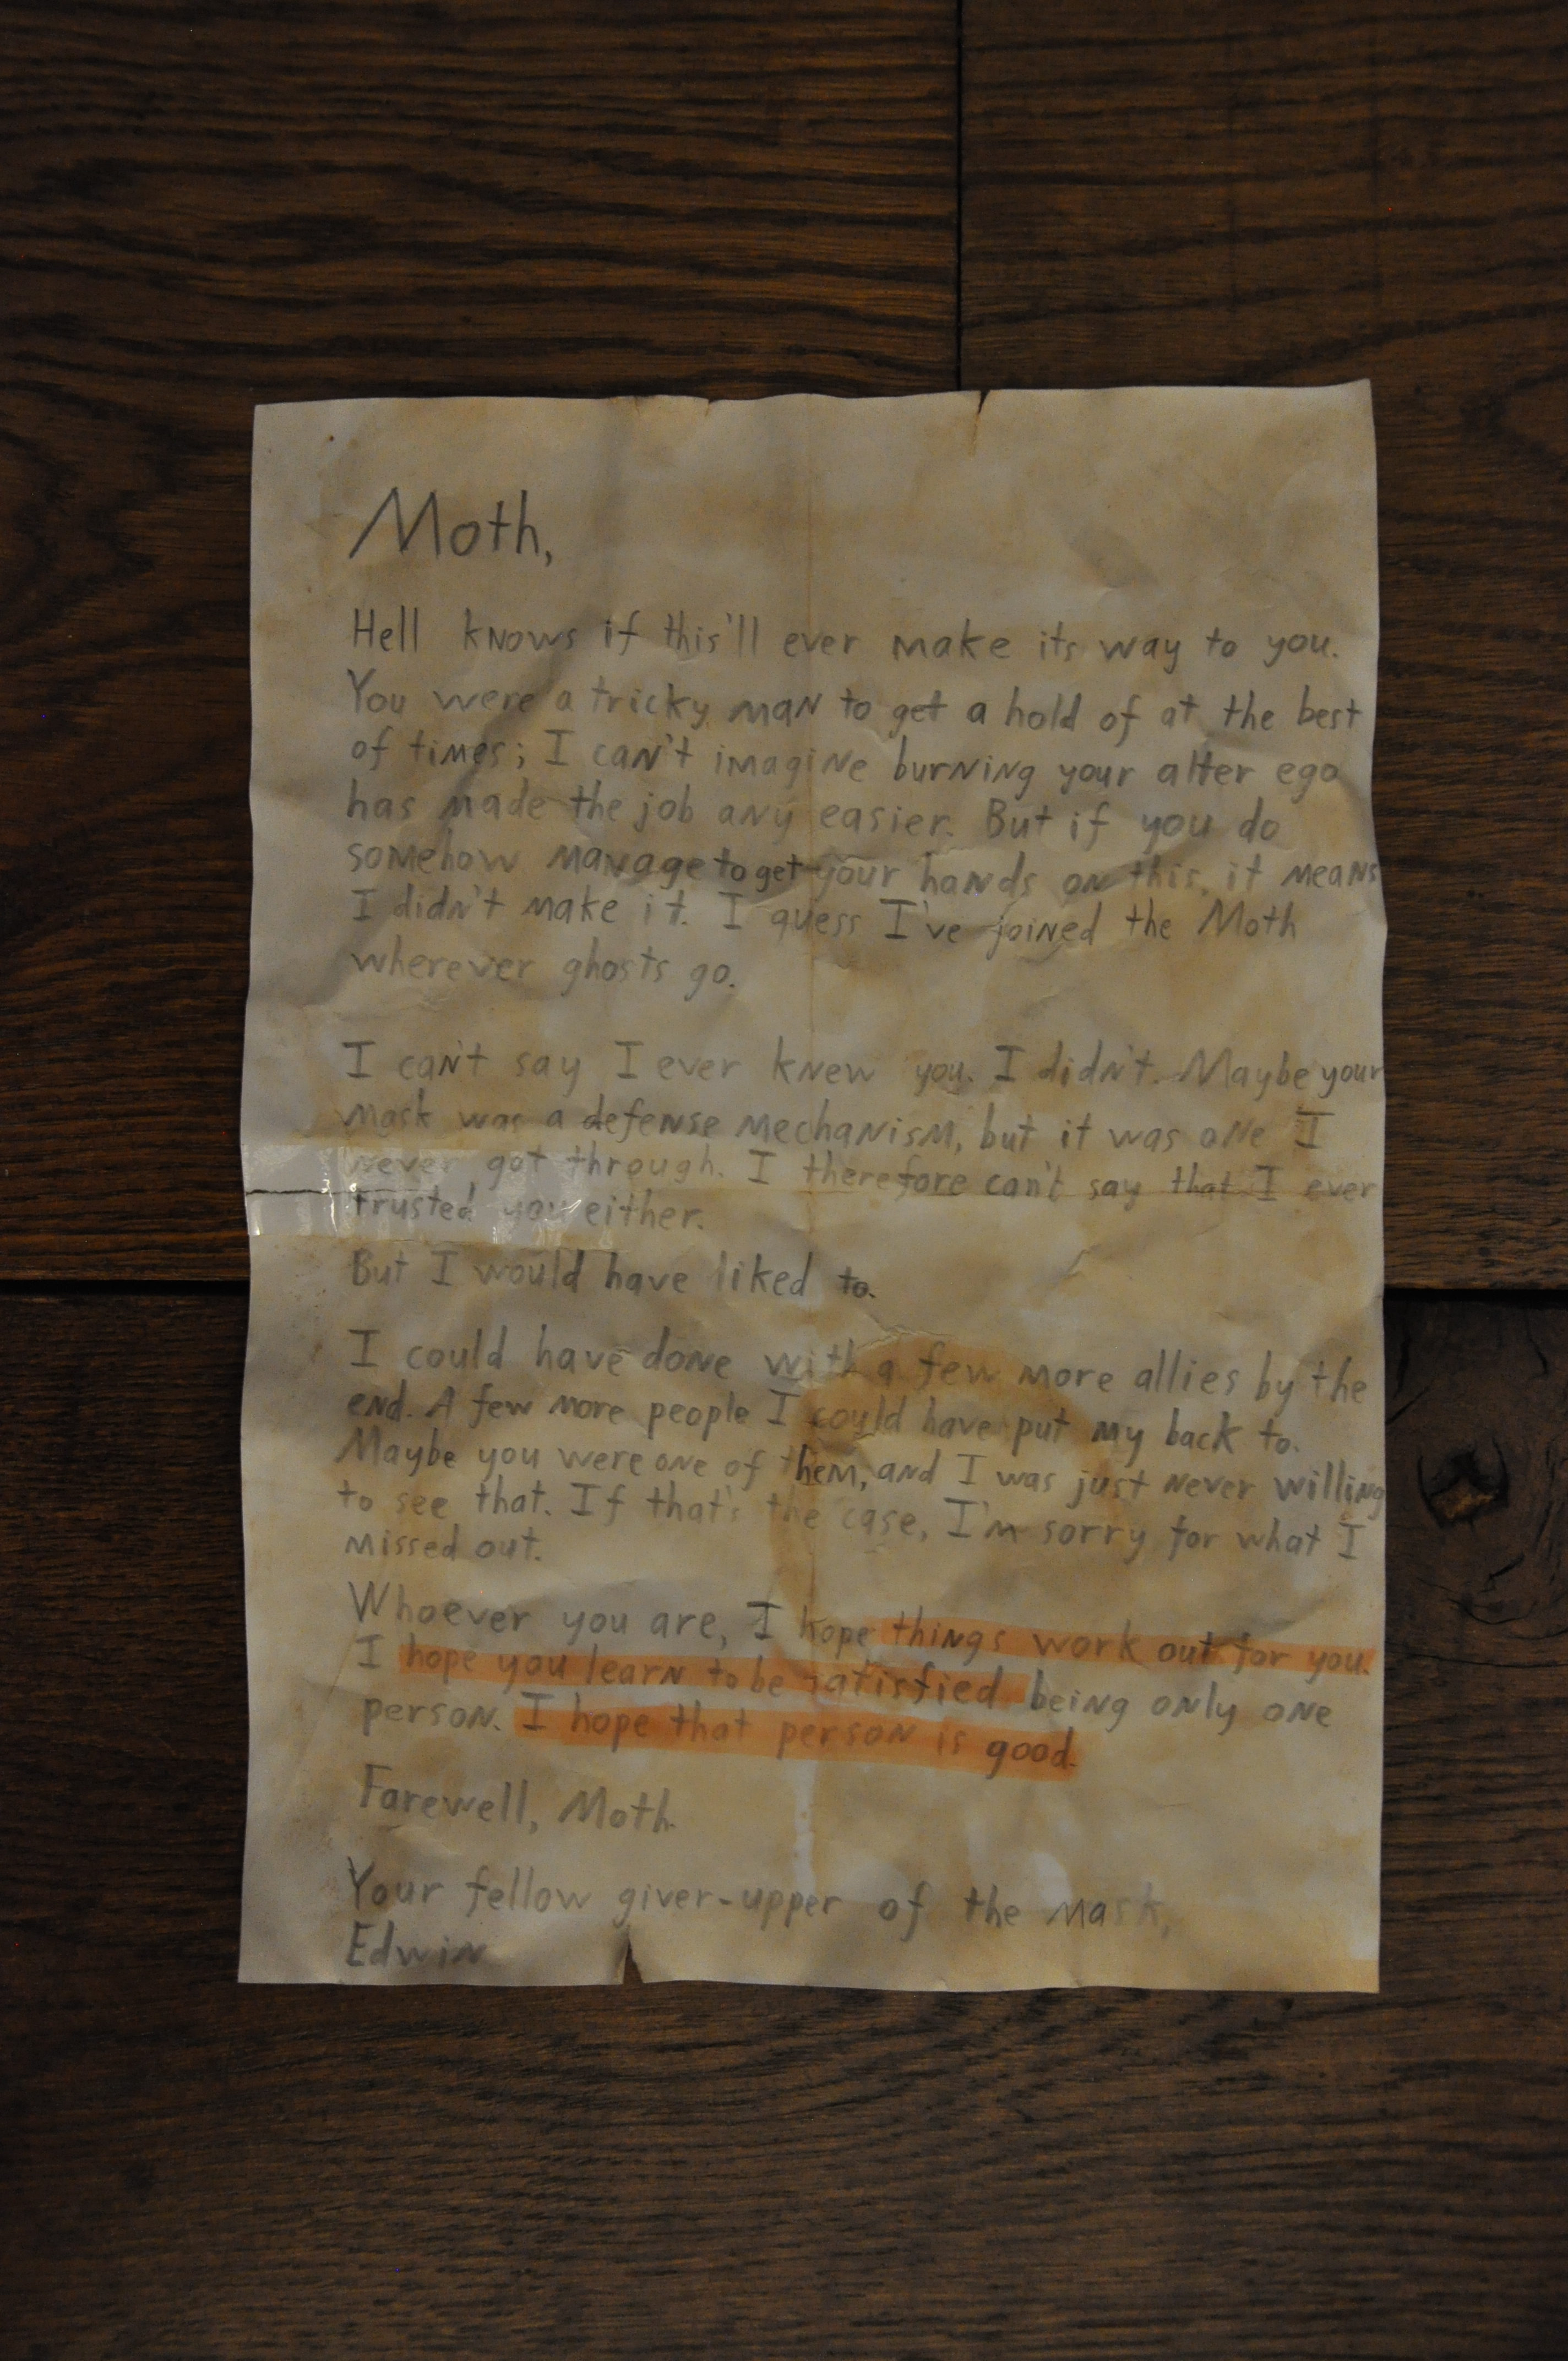 Moth,
Hell knows if this'll ever make its way to you.
You were a tricky man to get a hold of at the best
of times; I can't imagine burning your alter ego
has made the job any easier. But if you do
somehow manage to get your hands on this, it means
I didn't make it. I guess I've joined the Moth
wherever ghosts go.
I can't say I ever knew you. I didn't. Maybe your
mask was a defense mechanism, but it was one I
never got through. I therefore can't say that I ever
trusted you either.
But I would have liked to.
I could have done with a few more allies by the
end. A few more people I could have put my back to.
Maybe you were one of them, and I was just never willing
to see that. If that's the case, I'm sorry for what I
missed out.
Whoever you are, I hope things work out for you.
I hope you learn to be satisfied being only one
person. I hope that person is good.
Farewell, Moth.
Your fellow giver-upper of the mask,
Edwin